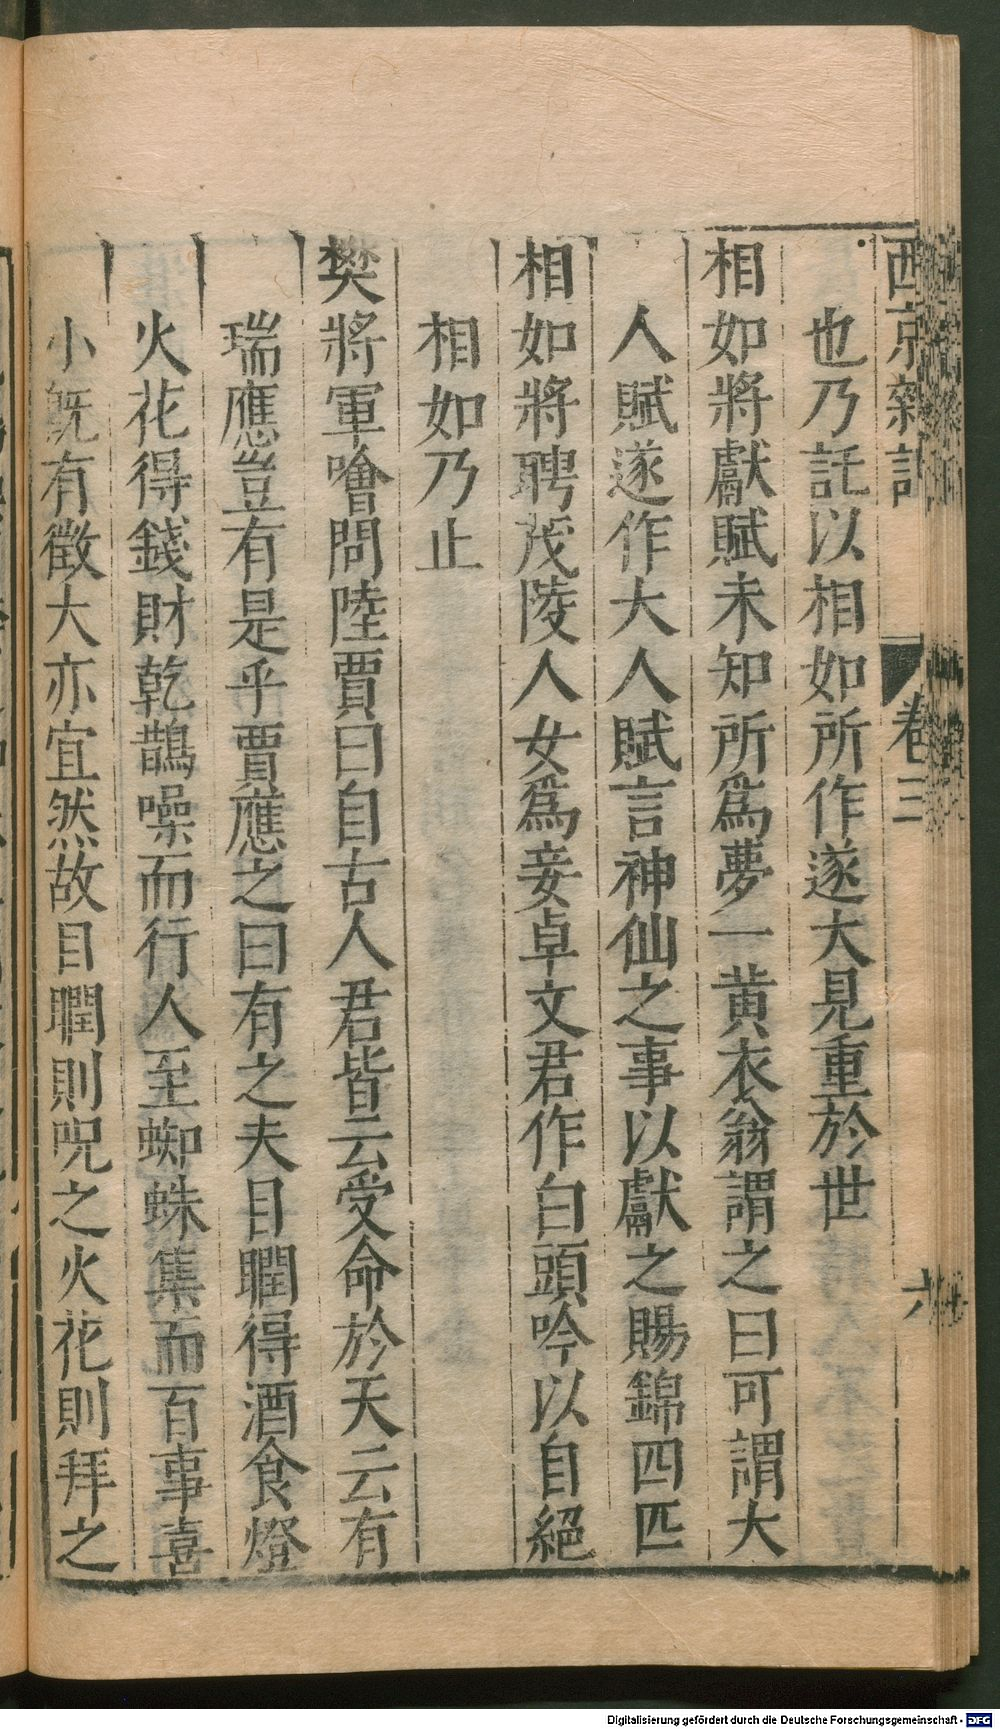 西京雜記 卷三 六
也乃託以相如所作遂大見重於世
相如將獻賦未知所爲夢一黄衣翁謂之曰可謂大
人賦遂作大人賦言神仙之事以獻之賜錦四匹
相如將聘茂陵人女爲妾卓文君作白頭吟以自絕
相如乃止
樊將軍噲問陸賈曰自古人君皆云受命於天云有
瑞應豈有是乎賈應之曰有之夫目瞤得酒食燈
火花得錢財乾鵲噪而行人至蜘蛛集而百事喜
小旣有徵大亦宜然故目瞤則呪之火花則拜之
Digitalisierung gefördert durch die Deutsche Forschungsgemeinschaft - DFG